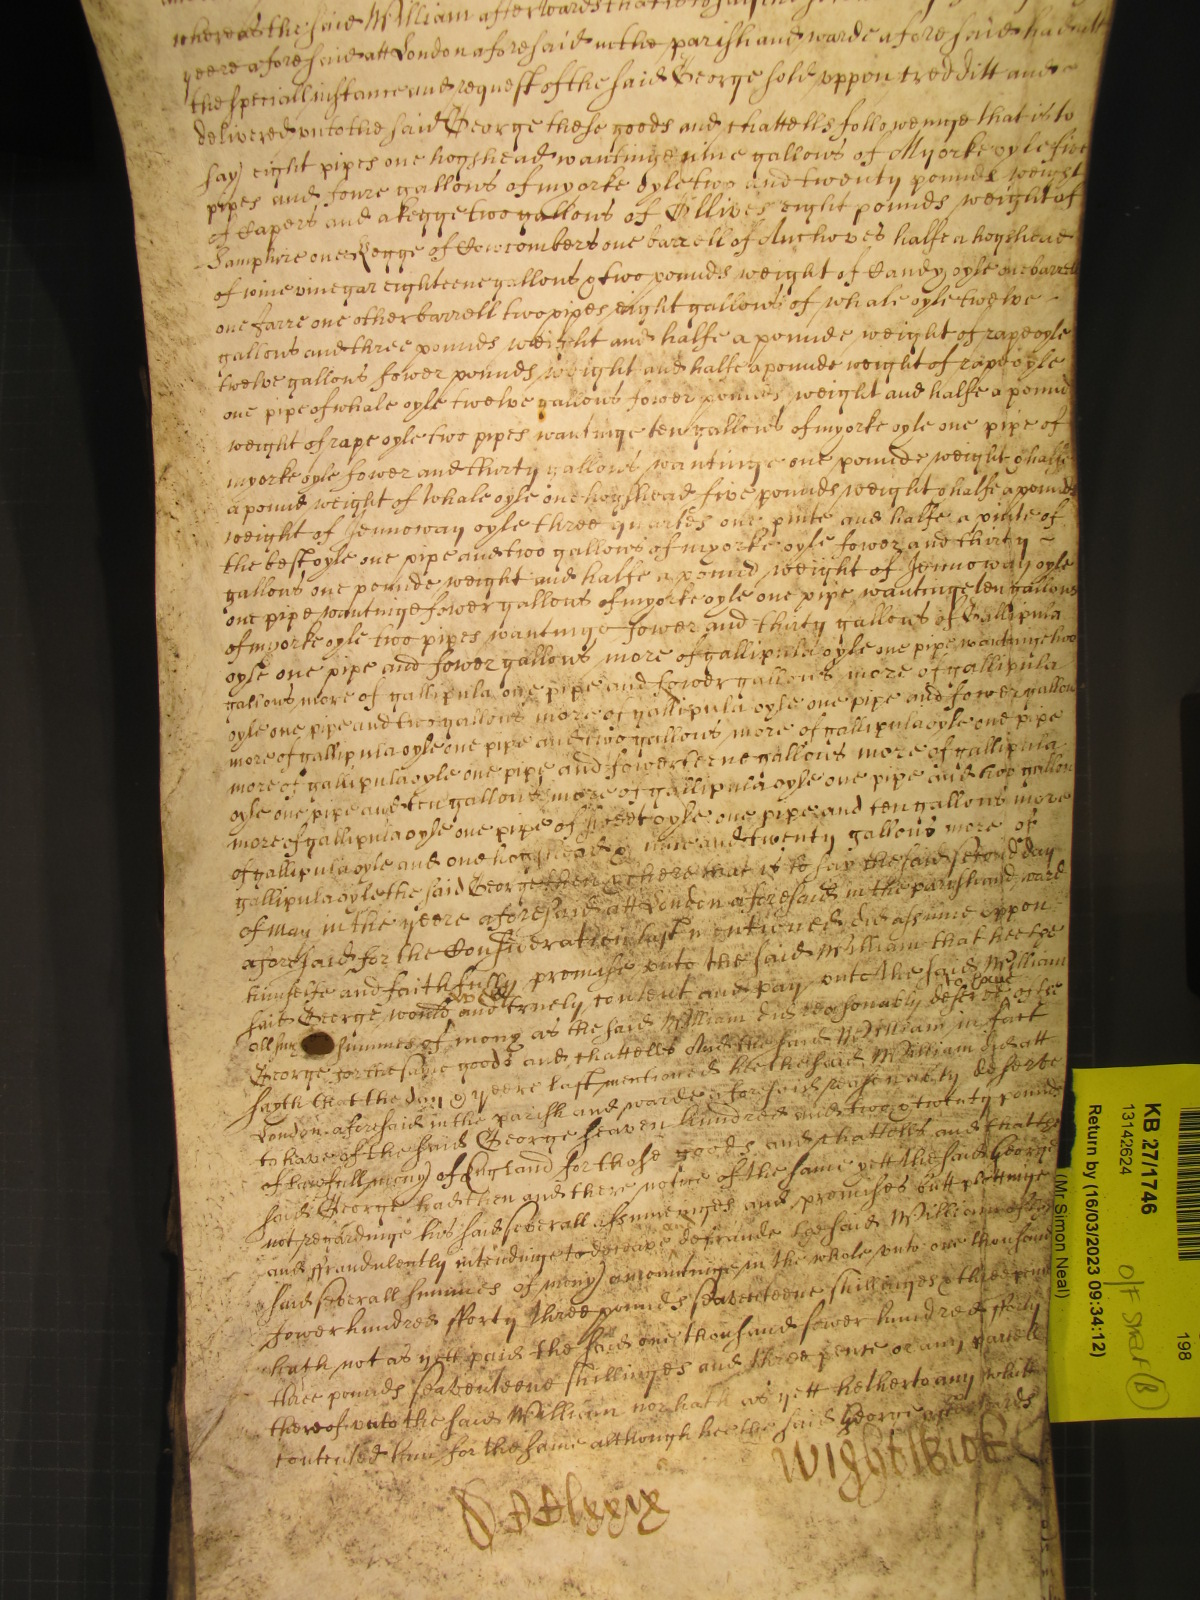 whereas the said William afterwards that is to say the
yeere aforesaid att London aforesaid in the parish and warde aforesaid had att
the speciall instance and request of the said George sold uppon creditt and
delivered unto the said George these goods and chattells followeinge that is to
say eight pipes one hogshead wantinge nine gallons of Myorke oyle five
pipes and foure gallons of myorke oyle two and twenty pounds weight
of Capers and a kegge two gallons of Ollives eight pounds weight of
Samphire one kegge of Cowcombers one barrell of Anchoves halfe a hogshead
of wine vinegar eighteene gallons & two pounds weight of Candy oyle one barrell
one Jarre one other barrell two pipes eight gallons of whale oyle twelve
gallons and three pounds weight and halfe a pounde weight of rape oyle
twelve gallons fower pounds weight and halfe a pounde weight of rape oyle
one pipe of whale oyle twelve gallons fower pounds weight and halfe a pound
weight of rape oyle two pipes wantinge ten gallons of myorke oyle one pipe of
myorke oyle fower and thirty gallons wantinge one pounde weight & halfe
a pound weight of whale oyle one hogshead five pounds weight & halfe a pounds
weight of Jennoway oyle three quartes one pinte and halfe a pinte of
the best oyle one pipe and two gallons of myorke oyle fower and thirty
gallons one pounde weight and halfe a pound weight of Jennoway oyle
one pipe wantinge fower gallons of myorke oyle one pipe wantinge ten gallons
of myorke oyle two pipes wantinge fower and thirty gallons of Gallipula
oyle one pipe and fower gallons more of gallipula oyle one pipe wantinge two
gallons more of gallipula one pipe and fower gallons more of gallipula
oyle one pipe and two gallons more of gallipula oyle one pipe and fower gallons
more of gallipula oyle one pipe and two gallons more of gallipula oyle one pipe
more of gallipula oyle one pipe and fowerteene gallons more of gallipula
oyle one pipe and ten gallons more of gallipula oyle one pipe and two gallons
more of gallipula oyle one pipe of sweet oyle one pipe and ten gallons more
of gallipula oyle and one hogshead & nine and twenty gallons more of
gallipula oyle the said George then & there that is to say the said second day
of May in the yeere aforesaid att London aforesaid in the parish and ward
aforesaid for the Consideration last mentioned did assume uppon
himselfe and faithfully promise unto the said William that hee the
said George would well and truely content and pay unto the said William
all such summes of mony as the said William did reasonably deserve to have of the
George for the same goods and chattells And the said William in fact
sayth that the day & yeere last mentioned hee the said William did att
London aforesaid in the parish and warde aforesaid reasonably deserve
to have of the said George seaven hundred and two & twenty pounds
of lawfull mony of England for those goods and chattells and that the
said George had then and there notice of the same yett the said George
not regardinge his said severall assumeinges and promises butt plottinge
and ffraudulently intendinge to deceave and defraude the said William of the
said severall summes of mony amountinge in the whole unto one thousand
fower hundred fforty three pounds seaventeene shillinges & three pence
hath not as yett paid the said one thousand fower hundred fforty
three pounds seaventeene shillinges and three pence or any parcell
thereof unto the said William nor hath as yett hetherto any whitt
contented him for the same although hee the said George afterwards
Wightwick
KB 27/1746
13142624
198
Return by (16/03/2023 09:34:12)
(Mr Simon Neal)